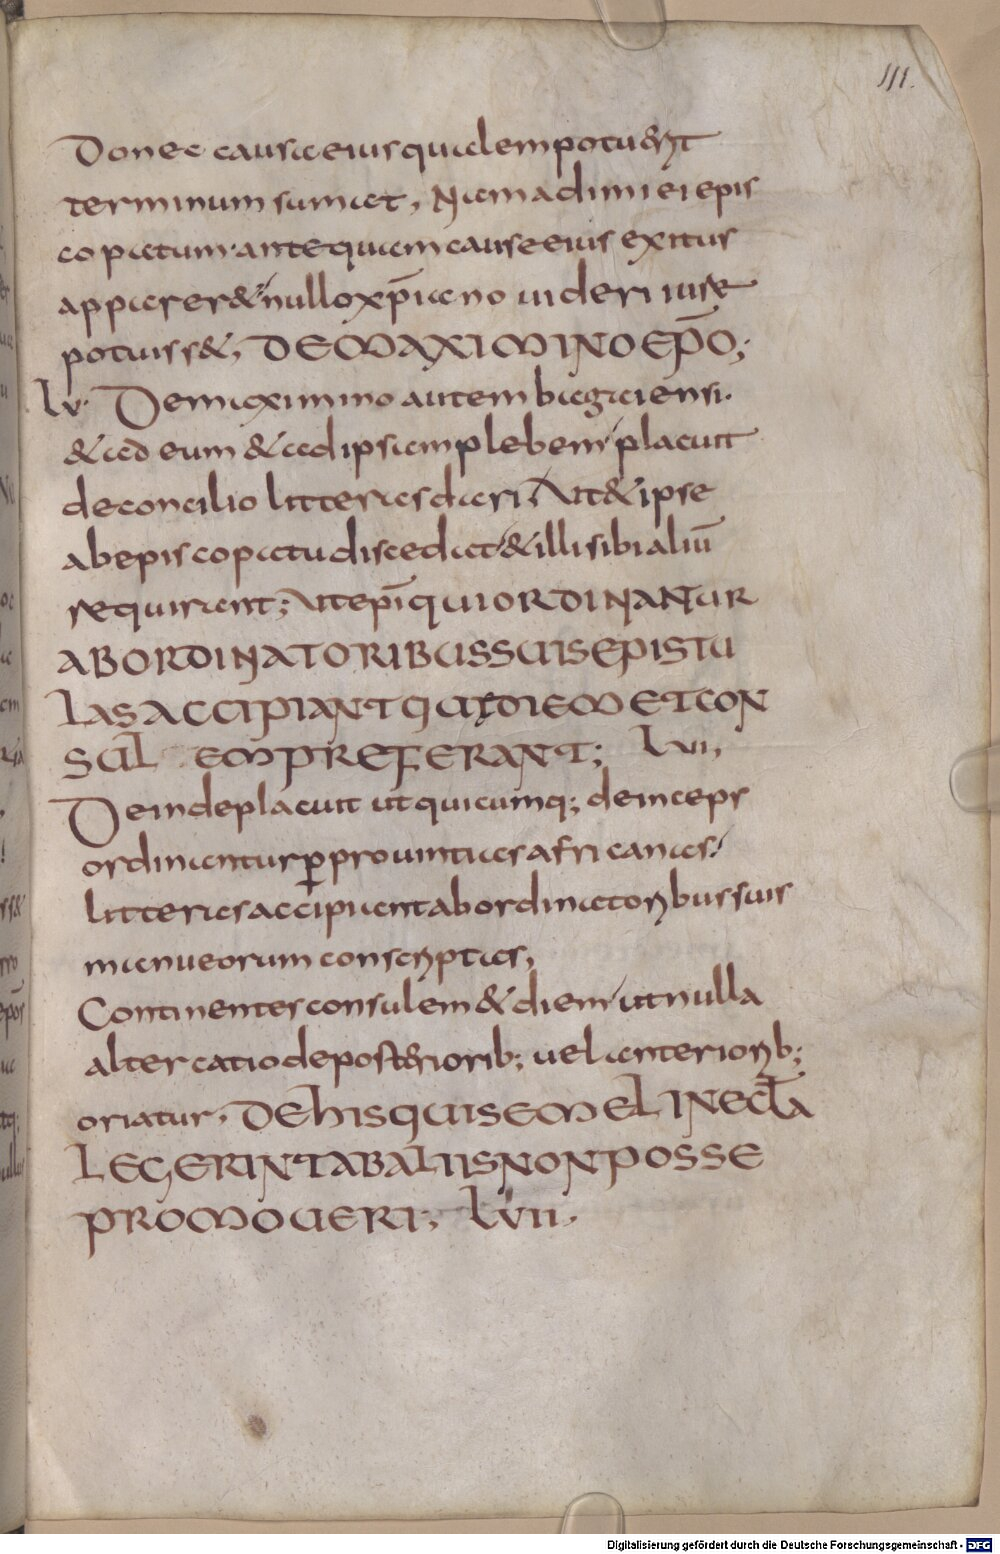 111.
Donec causa eius quidem potuerit
terminum sumat, Nam adimi ei epis
copatum antequam cause eius exitus
appareret nullo xp̄iano uideri iure
potuisset, DE MAXIMINO EP̄O;
LV. De maximino autem bagaiensi.
& ad eum & ad ipsam plebem placuit
de concilio litteras dari, Ut & ipse
ab episcopatu discedat & illi sibi aliū
requirant; Ut ep̄i QUI ORDINANTUR
AB ORDINATORIBUS SUIS EPISTU
LAS ACCIPIANT QUI DIEM ET CON
SULEM PREFERANT; LVI,
Deinde placuit ut quicumq; deinceps
ordinantur ꝑ prouintias africanas.
litteras accipiant ab ordinatoribus suis
manu eorum conscriptas,
Continentes consulem & diem ut nulla
altercatio de posteriorib; uel anteriorib;
oriatur, DE HIS QUI SEMEL IN ECLA
LEGERINT AB ALIIS NON POSSE
PROMOUERI; LVII.
Digitalisierung gefördert durch die Deutsche Forschungsgemeinschaft - DFG